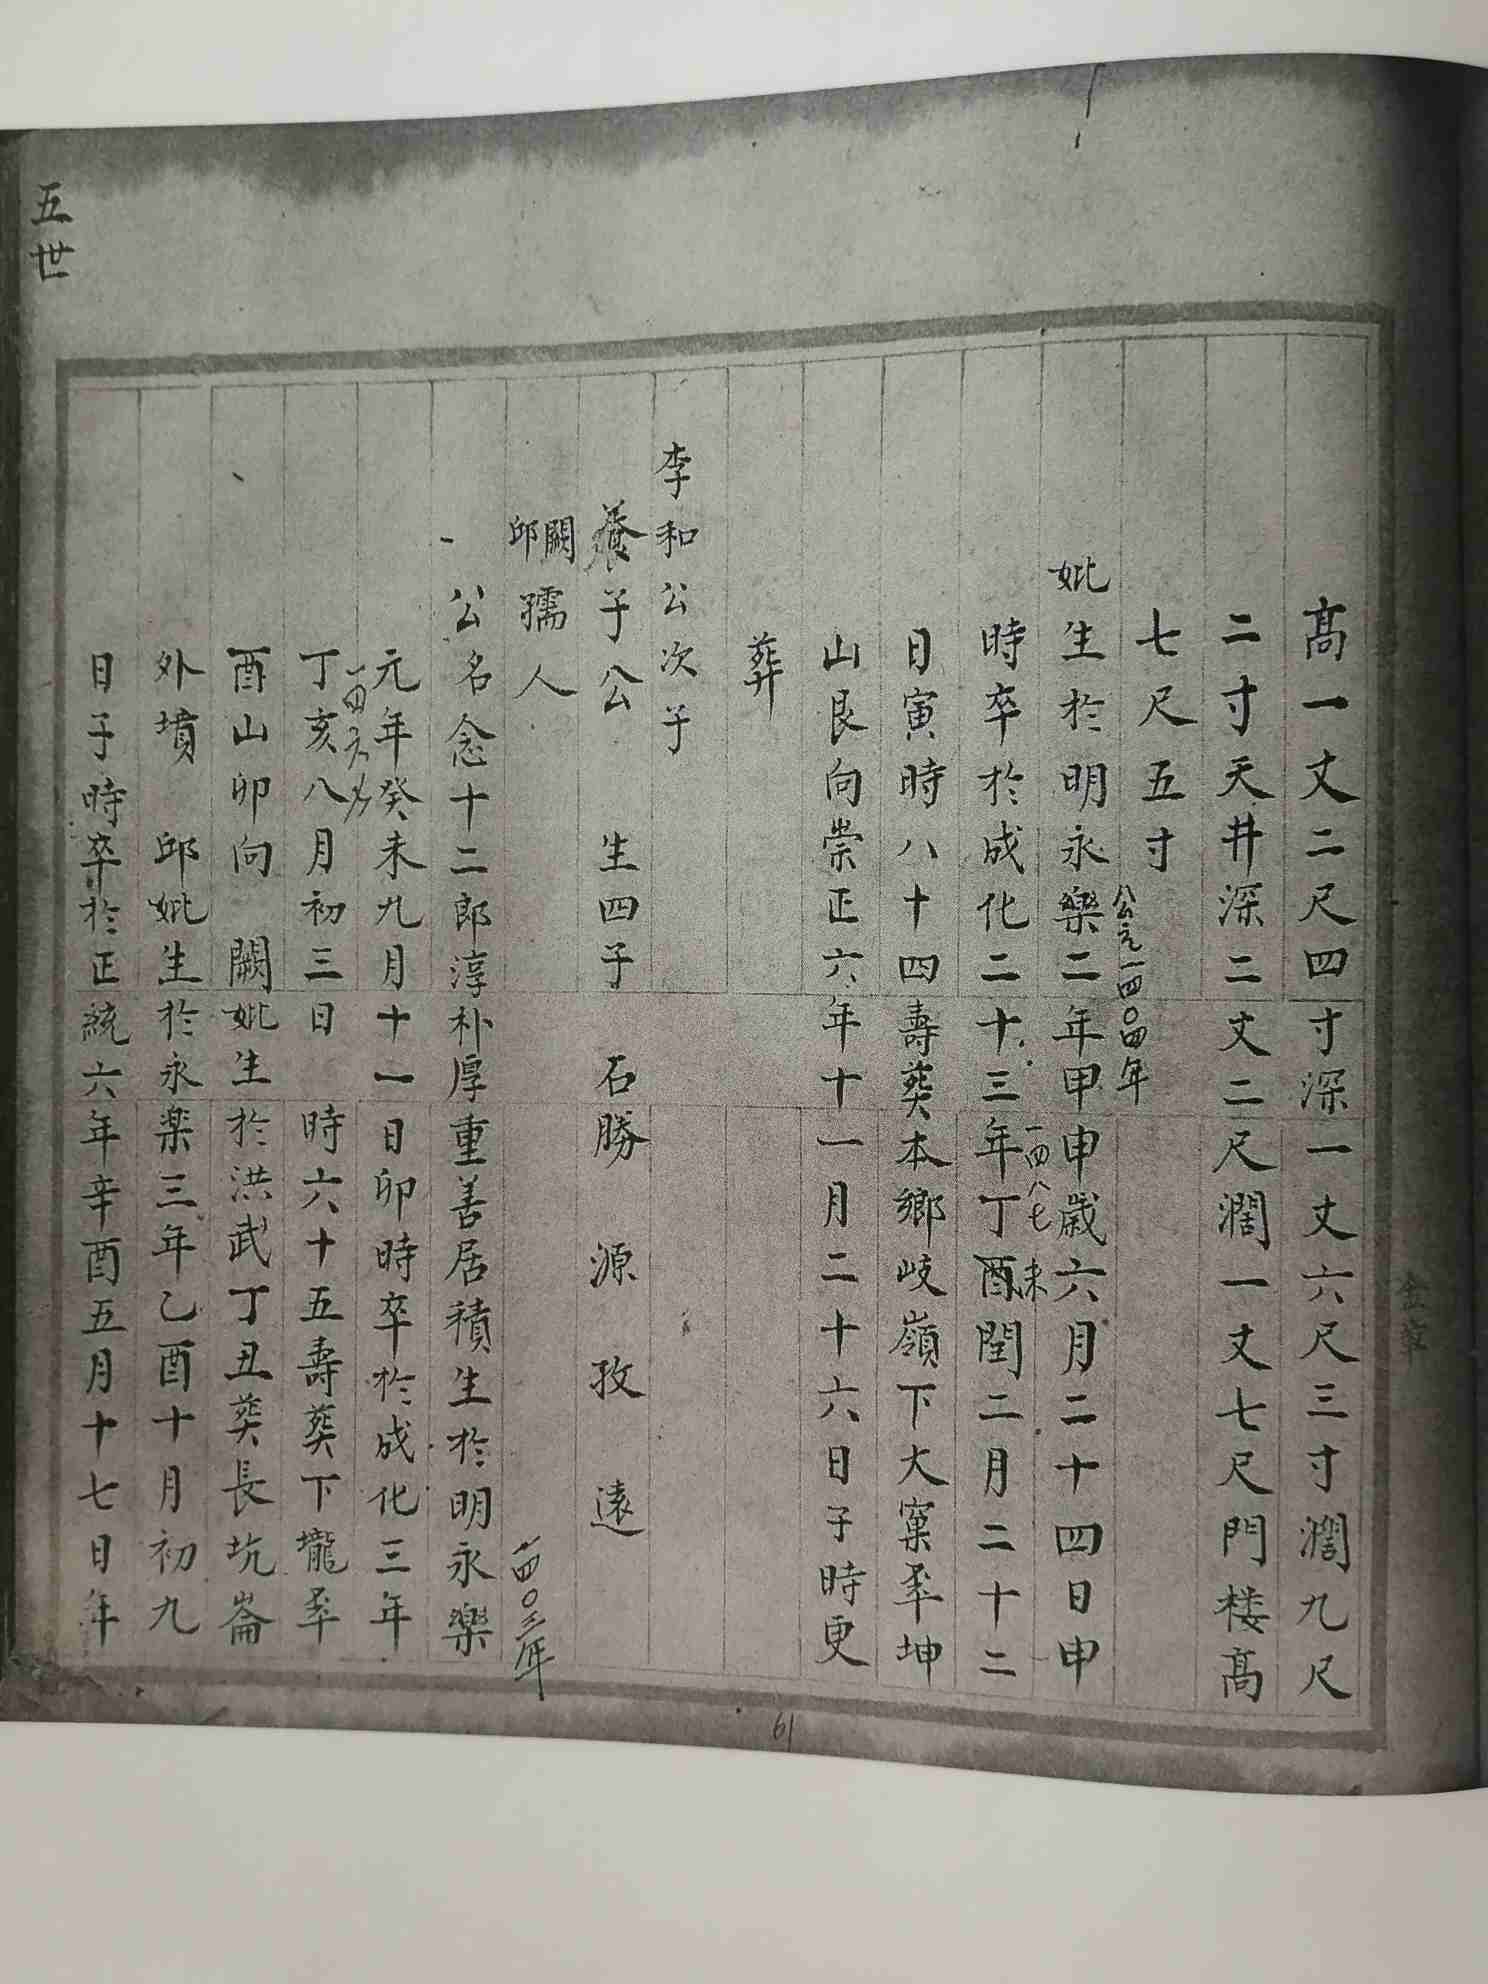 高一丈二尺四寸深一丈六尺三寸濶九尺
二寸天井深二丈二尺濶一丈七尺門楼高
七尺五寸
公元一四〇四年
妣生於明永樂二年甲申歲六月二十四日申
一四八七 未
時卒於成化二十三年丁酉閏二月二十二
日寅時八十四壽葬本鄉岐嶺下大窠坪坤
山艮向崇正六年十一月二十六日子時更
葬
李和公次子
養子公 生四子 石勝 源 孜 遠
闕邱孺人
一四〇三年
公名念十二郎淳朴厚重善居積生於明永樂
元年癸未九月十一日卯時卒於成化三年
丁亥八月初三日 時六十五壽葬下壠坪
酉山卯向 闕妣生於洪武丁丑葬長坑崙
外墳 邱妣生於永楽三年乙酉十月初九
日子時卒於正統六年辛酉五月十七日年
五世
61